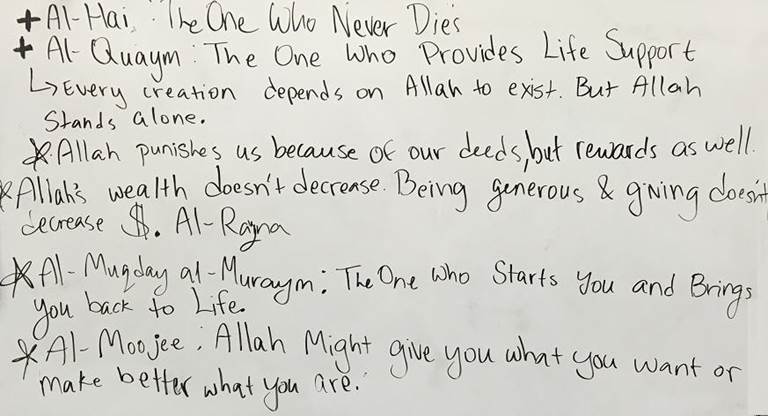 + Al-Hai : The One Who Never Dies
+ Al-Quaym : The One Who Provides Life Support
↳ Every creation depends on Allah to exist. But Allah
stands alone.
* Allah punishes us because of our deeds, but rewards as well.
* Allah's wealth doesn't decrease. Being generous & giving doesn't
decrease $. Al-Razna
* Al-Muqday al-Muraym : The One Who Starts You and Brings
you back to Life.
* Al-Moojee : Allah Might give you what you want or
make better what you are.